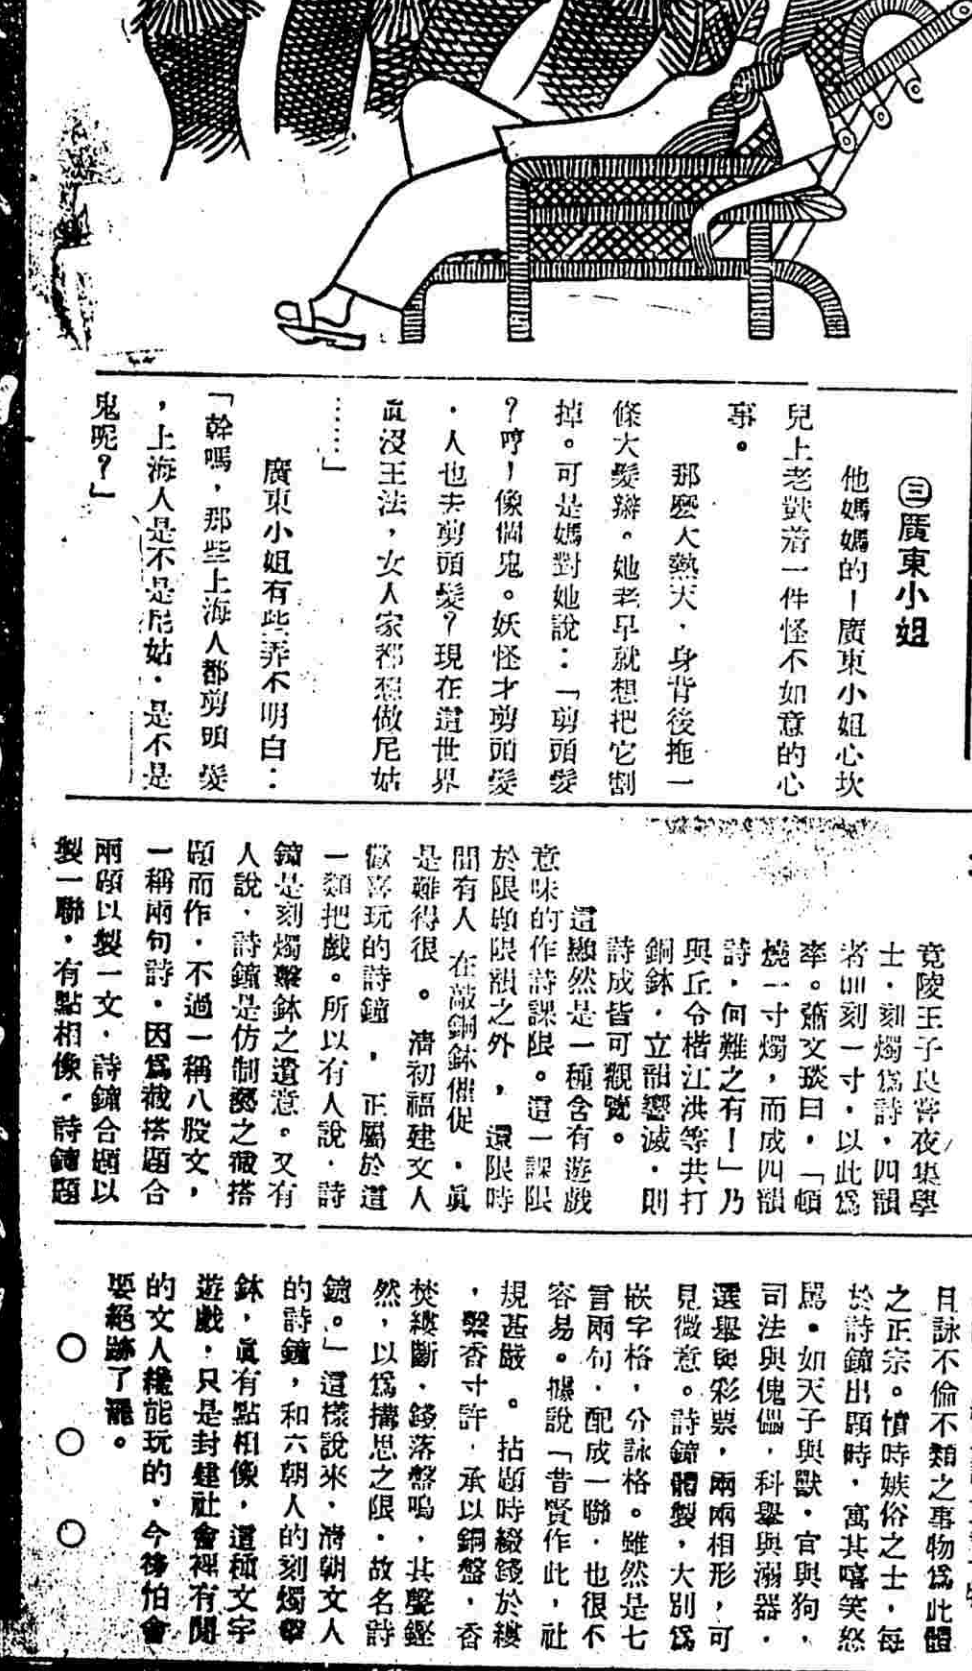 ㊂廣東小姐
他媽媽的!廣東小姐心坎
兒上老獃着一件怪不如意的心
事。
那麼大熱天,身背後拖一
條大髮辮。她老早就想把它割
掉。可是媽對她說:「剪頭髮
?哼!像個鬼。妖怪才剪頭髮
。人也去剪頭髮?現在這世界
眞沒王法,女人家都想做尼姑
……」
廣東小姐有些弄不明白:
「幹嗎,那些上海人都剪頭髮
,上海人是不是尼姑,是不是
鬼呢?」
竟陵王子良嘗夜集學
士,刻燭爲詩,四韻
者則刻一寸,以此爲
率。蕭文琰曰,「頓
燒一寸燭,而成四韻
詩,何難之有!」乃
與丘令楷江洪等共打
銅鉢,立韻響滅,則
詩成皆可觀覽。
這顯然是一種含有遊戲
意味的作詩課限。這一課限
於限題限韻之外,還限時
間有人在敲銅鉢催促,眞
是難得很。淸初福建文人
歡喜玩的詩鐘,正屬於這
一類把戲。所以有人說,詩
鐘是刻燭擊鉢之遺意。又有
人說,詩鐘是仿制藝之截搭
題而作,不過一稱八股文,
一稱兩句詩,因爲截搭題合
兩題以製一文,詩鐘合題以
製一聯,有點相像。詩鐘題
目詠不倫不類之事物爲此體
之正宗。憤時嫉俗之士,每
於詩鐘出題時,寓其嘻笑怒
罵。如天子與獸,官與狗,
司法與傀儡,科舉與溺器,
選舉與彩票,兩兩相形,可
見微意。詩鐘體製,大別爲
嵌字格,分詠格。雖然是七
言兩句,配成一聯,也很不
容易。據說「昔賢作此,社
規甚嚴。拈題時綴錢於縷
,繫香寸許,承以銅盤,香
焚縷斷,錢落盤鳴,其聲鏗
然,以爲搆思之限,故名詩
鐘。」這樣說來,淸朝文人
的詩鐘,和六朝人的刻燭擊
鉢,眞有點相像,這種文字
遊戲,只是封建社會裡有閒
的文人纔能玩的,今後怕會
要絕跡了罷。
○ ○ ○